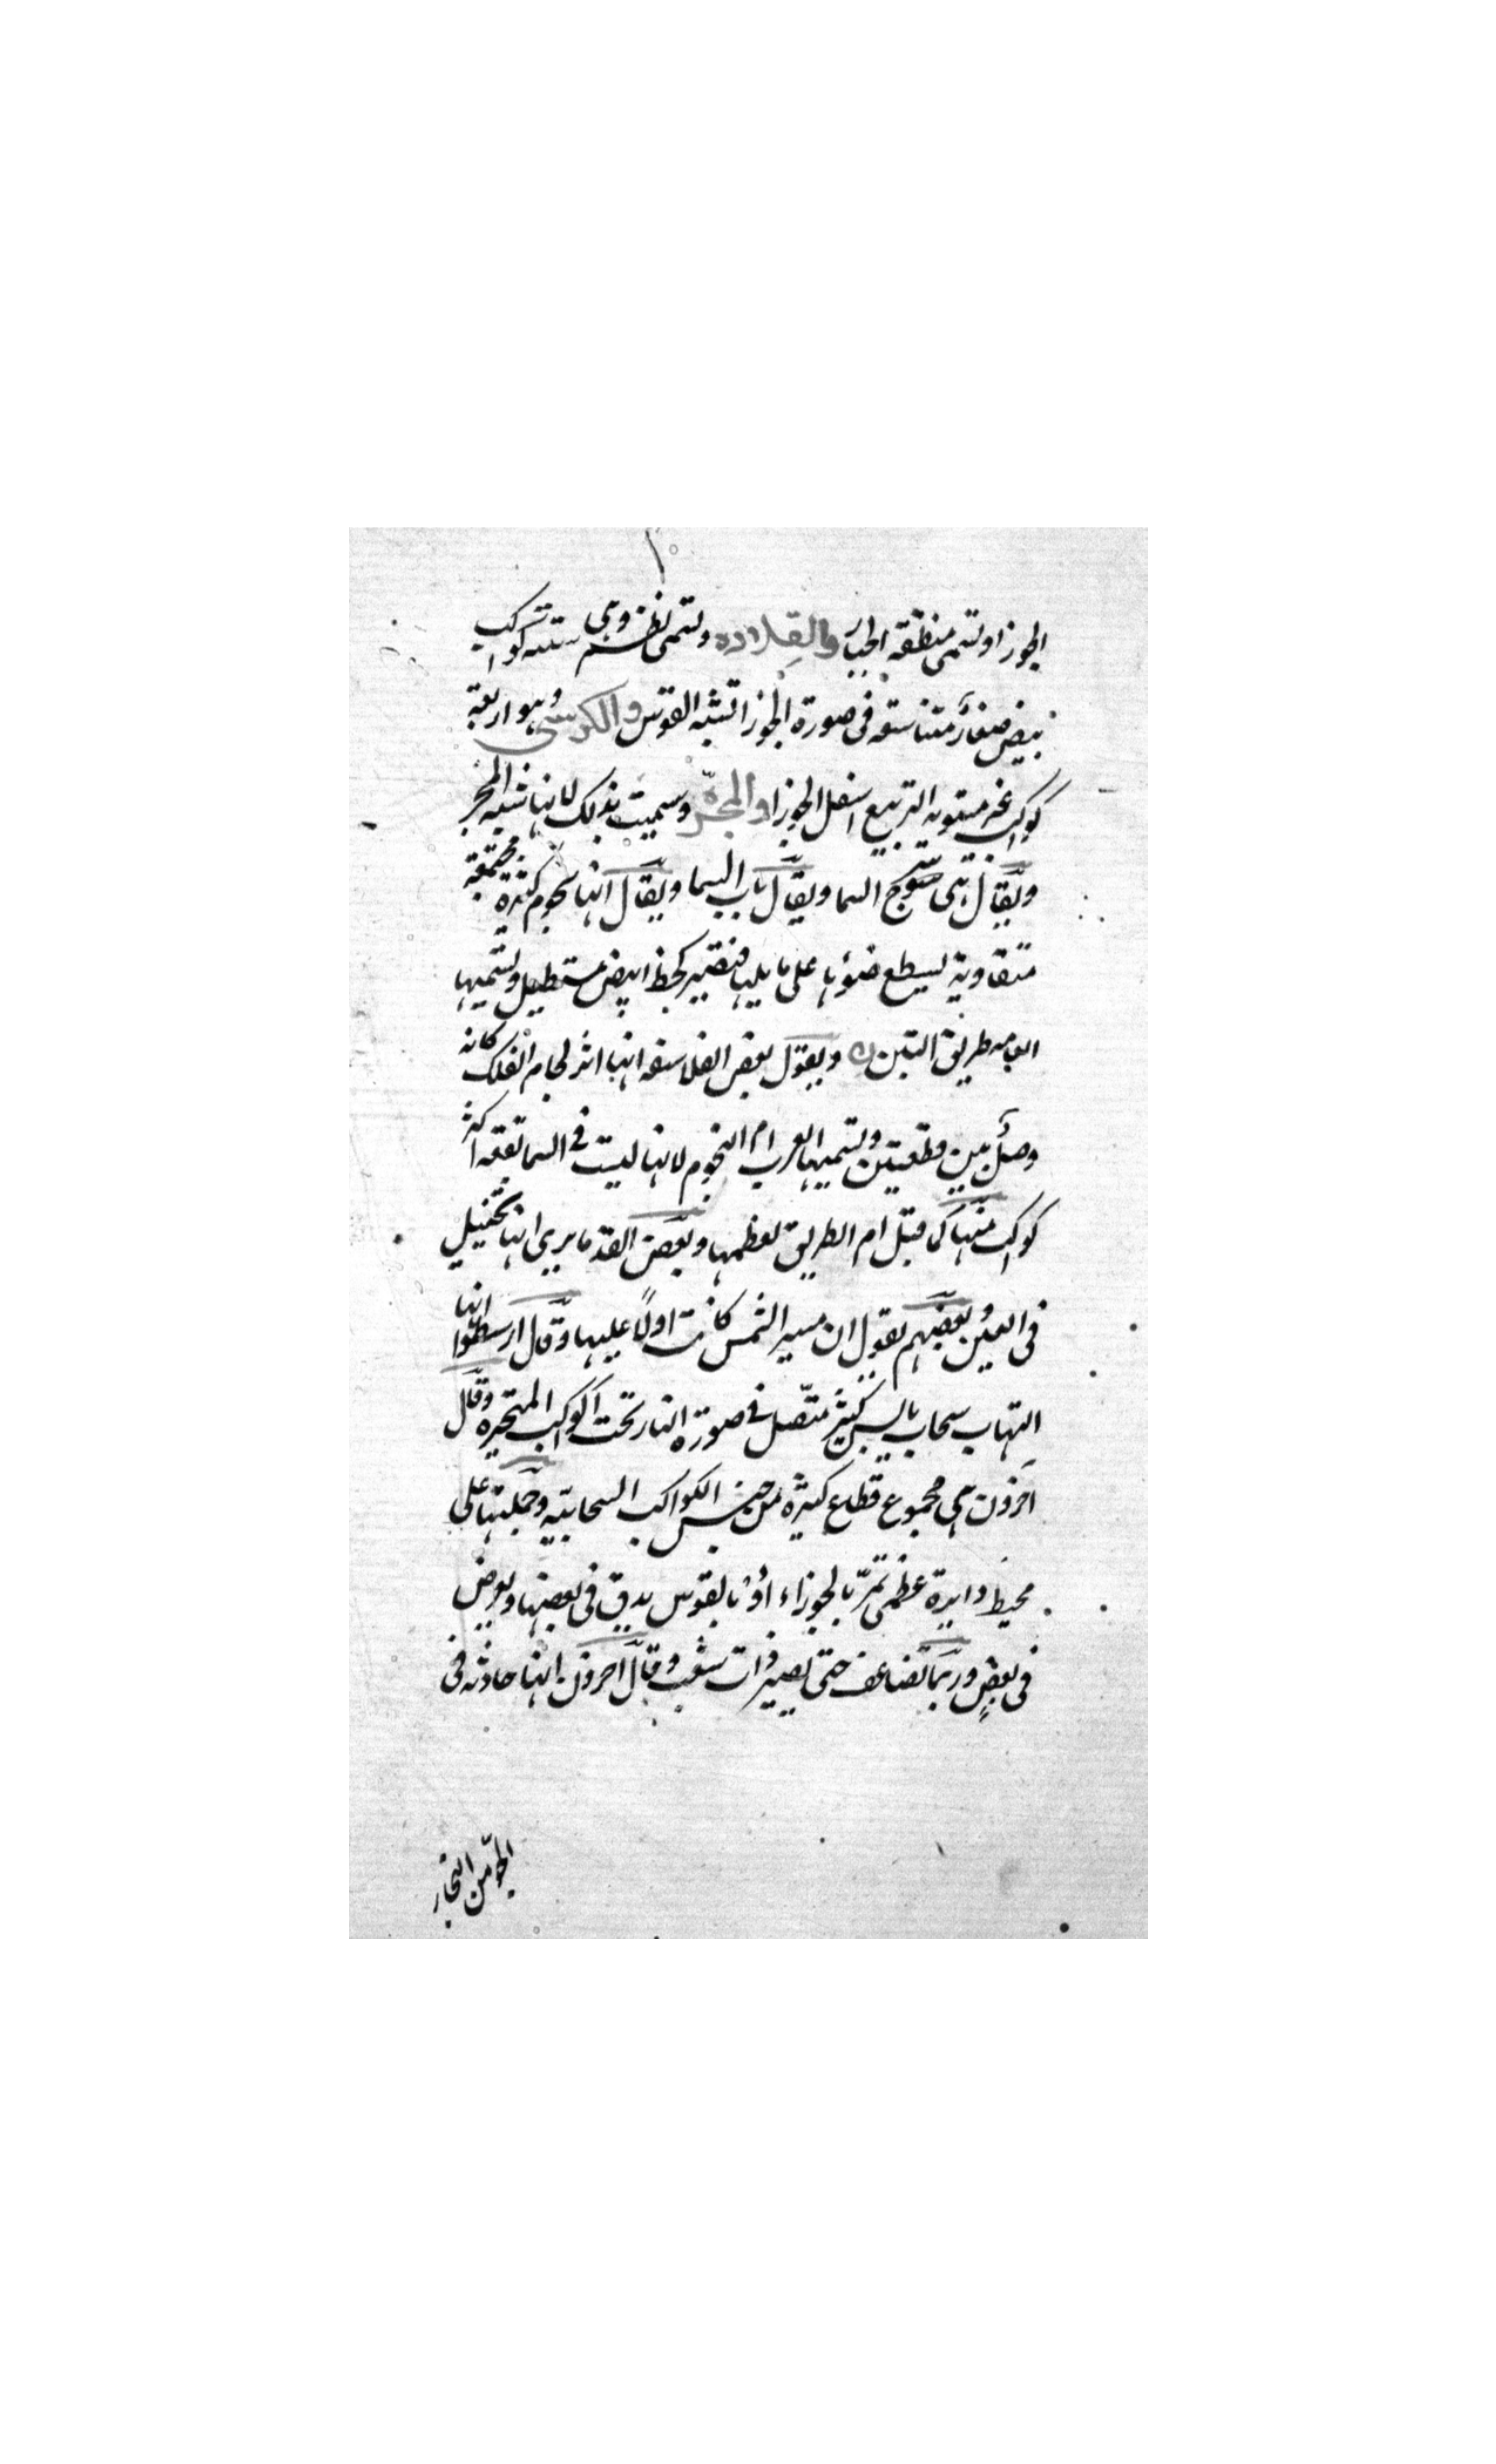 الجوزا وتسمى منطقة الجبار والقلاده وتسمى نظم وهى ستة كواكب
بيض صغار متناسقه فى صورة الجوزا تشبه القوس والكرسى وهو اربعة
كواكب غير مستويه التربيع اسفل الجوزا والمجرّة وسميت بذلك لانها شبه المجر
ويقال هى شرج السما ويقال باب السما ويقال انها نجوم كثيرة مجتمعة
متقاربة يسطع ضوئها على ما يليها فتصير كخط ابيض مستطيل وتسميها
العامه طريق التبن ويقول بعض الفلاسفه انها اثر لحام الفلك كانه
وصل بين قطعتين وتسميها العرب ام النجوم لانها ليست فى السما بقعه اكثر
كواكب منها كما قيل ام الطريق لعظمها وبعض القدما يرى انها تخييل
فى العين وبعضهم يقول ان مسير الشمس كانت اولًا عليها وقال ارسطوا انها
التهاب سحاب يابس كثير متّصل فى صورة النار تحت الكواكب المتحيره وقال
آخرون هى مجموع قطاع كثيرة من جنس الكواكب السحابيّه وجملتها على
محيط دايرة عظمى تمرّ بالجوزاء او بالقوس يدق فى بعضها ويعرض
فى بعضٍ وربما تضاعف حتى يصير ذات شعب وقال اخرون انها حادثه فى
الجوّ من البخار